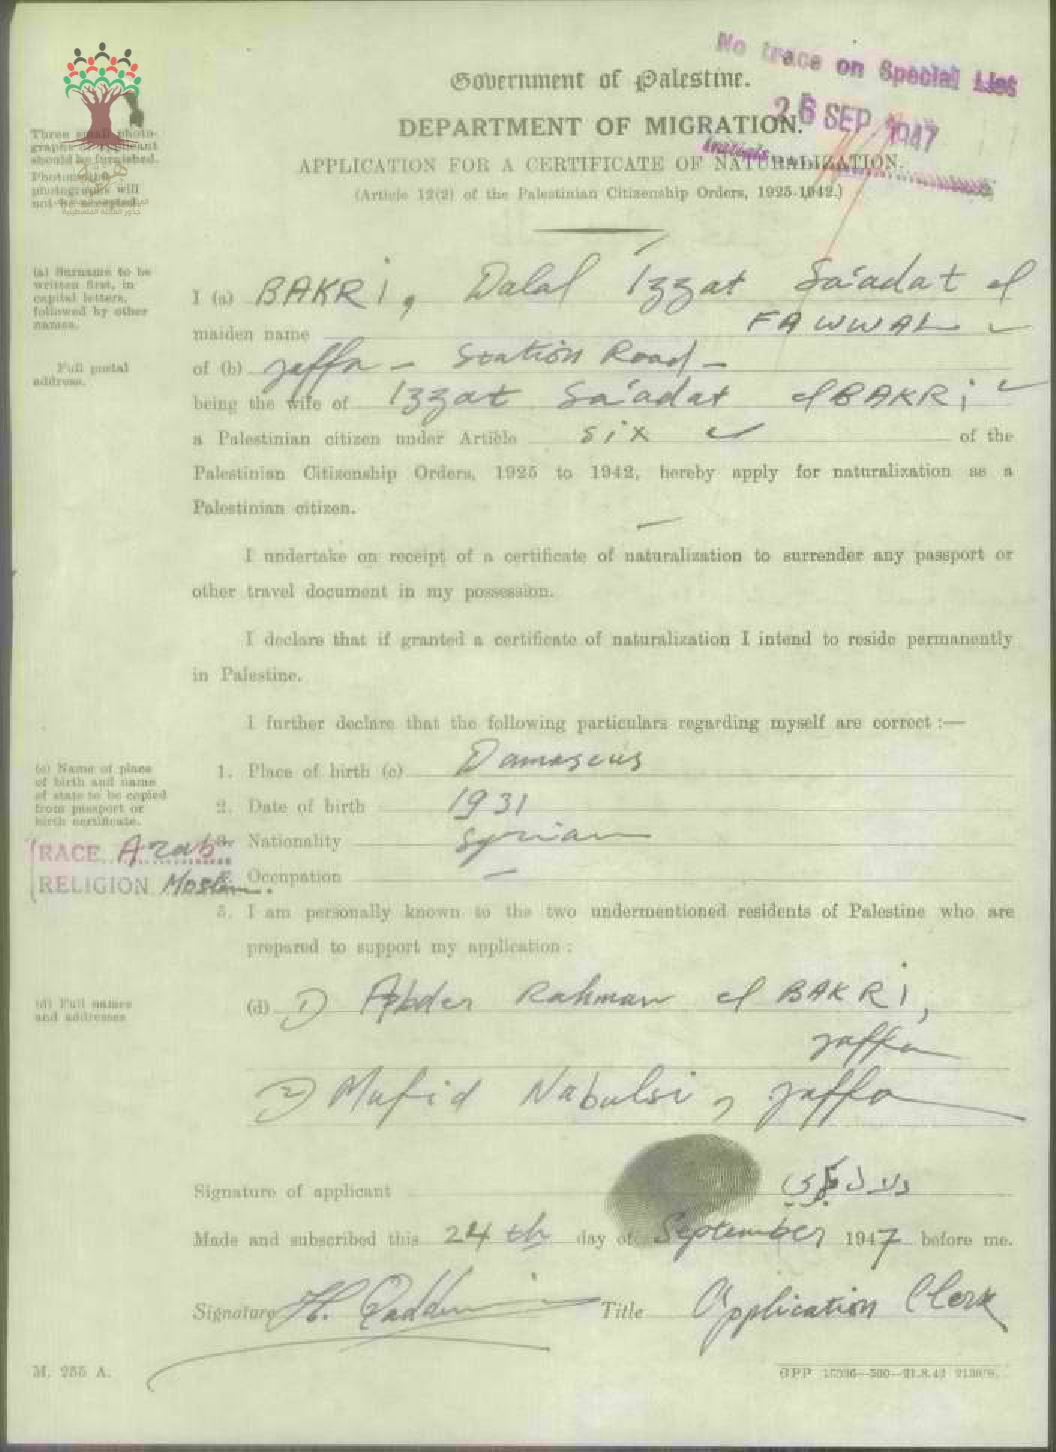 No trace on Special List
26 SEP 1947
Initials
Government of Palestine.
DEPARTMENT OF MIGRATION.
APPLICATION FOR A CERTIFICATE OF NATURALIZATION.
(Article 12(2) of the Palestinian Citizenship Orders, 1925-1942.)
Three small photo-
graphs of applicant
should be furnished.
photographs will
not be accepted.
(a) Surname to be
written first, in
capital letters,
followed by other
names.
I (a) BAKRI, Dalal Izzat Sa'adat el
maiden name FAWWAL
Full postal
address.
of (b) Jaffa - Station Road -
being the wife of Izzat Sa'adat el BAKRI
a Palestinian citizen under Article six of the
Palestinian Citizenship Orders, 1925 to 1942, hereby apply for naturalization as a
Palestinian citizen.
I undertake on receipt of a certificate of naturalization to surrender any passport or
other travel document in my possession.
I declare that if granted a certificate of naturalization I intend to reside permanently
in Palestine.
I further declare that the following particulars regarding myself are correct :—
(c) Name of place
of birth and name
of state to be copied
from passport or
birth certificate.
1. Place of birth (c) Damascus
2. Date of birth 1931
3. Nationality Syrian
RACE Arab
RELIGION Moslem.
Occupation —
5. I am personally known to the two undermentioned residents of Palestine who are
prepared to support my application :
(d) Full names
and addresses
(d) 1) Abder Rahman el BAKRI,
Jaffa
2) Mufid Nabulsi, Jaffa
Signature of applicant دلال بكري
Made and subscribed this 24th day of September 1947 before me.
Signature Title Application Clerk
M. 255 A.
GPP